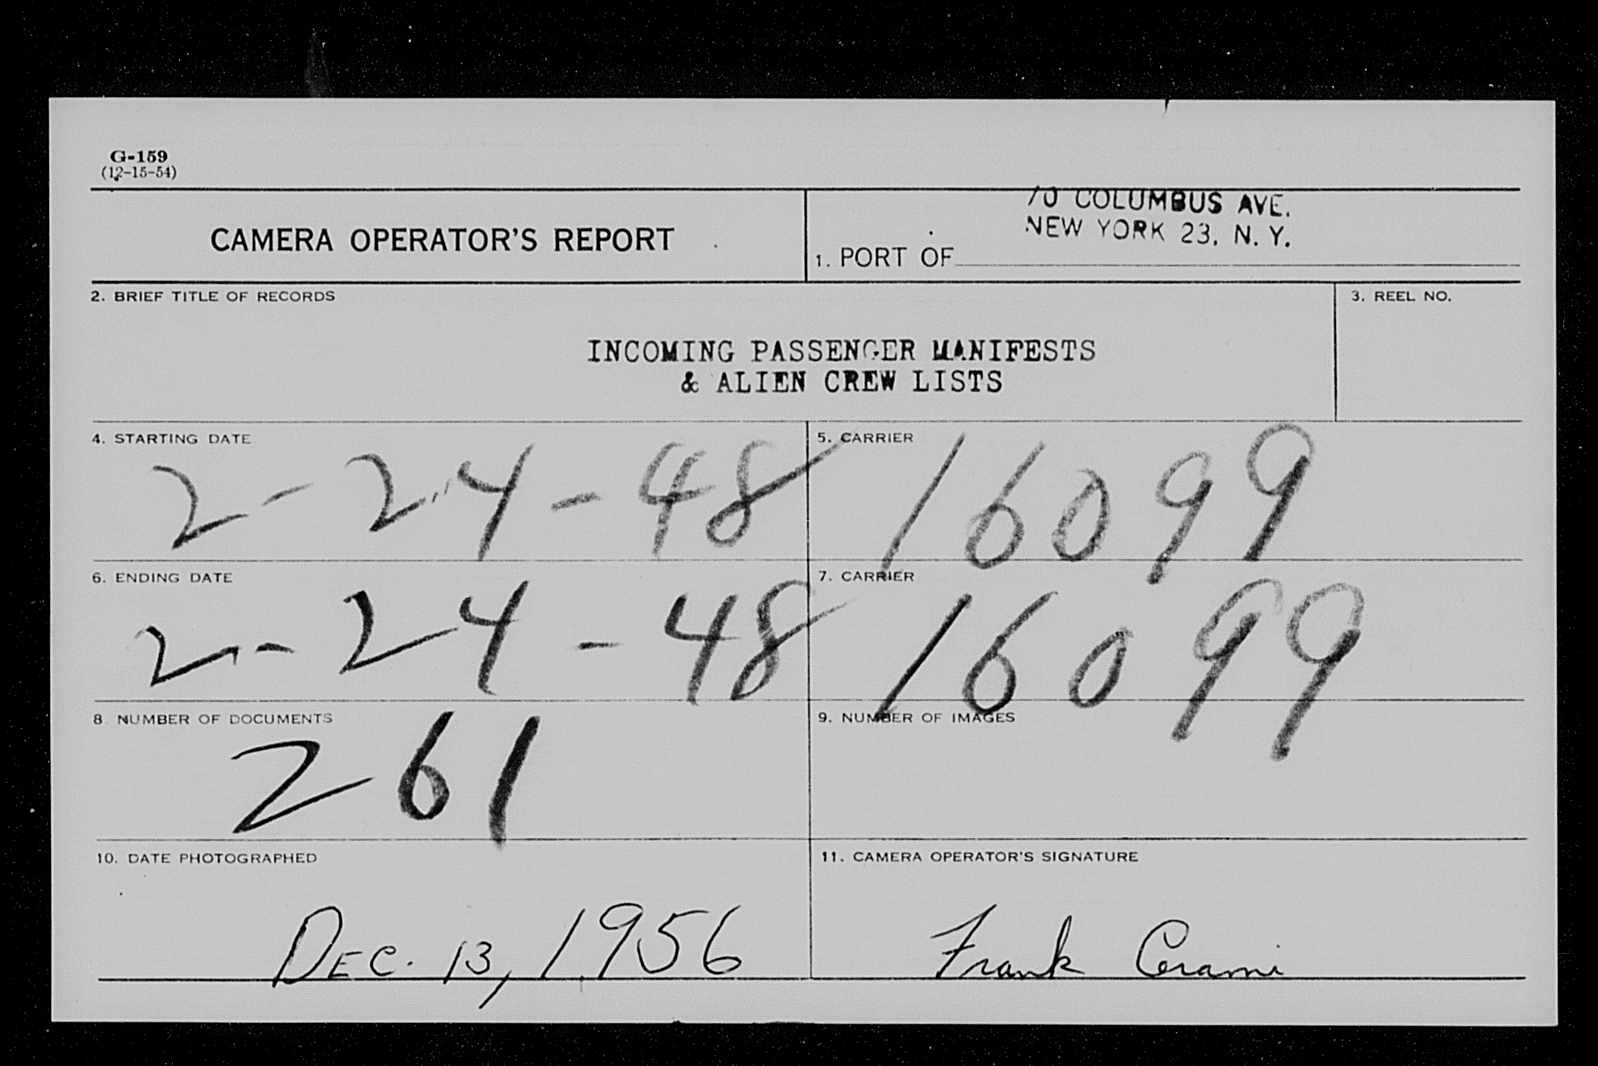 G-159
(12-15-54)
CAMERA OPERATOR'S REPORT
70 COLUMBUS AVE.
NEW YORK 23, N. Y.
1. PORT OF
2. BRIEF TITLE OF RECORDS
3. REEL NO.
INCOMING PASSENGER MANIFESTS
& ALIEN CREW LISTS
4. STARTING DATE
2-24-48
5. CARRIER
16099
6. ENDING DATE
2-24-48
7. CARRIER
16099
8. NUMBER OF DOCUMENTS
261
9. NUMBER OF IMAGES
10. DATE PHOTOGRAPHED
DEC. 13, 1956
11. CAMERA OPERATOR'S SIGNATURE
Frank Cerami